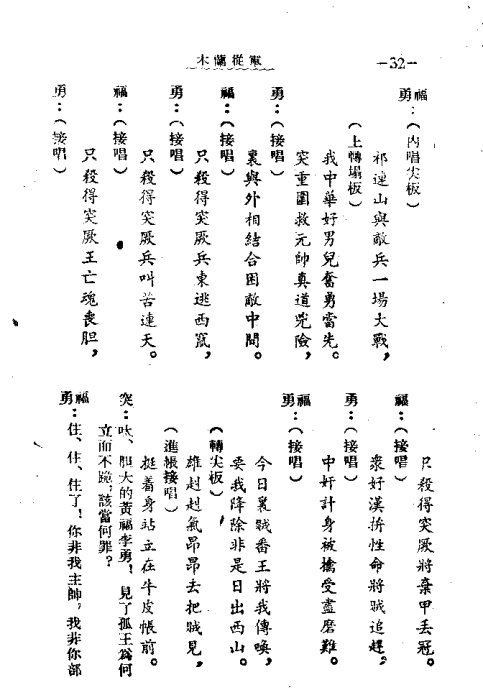 木蘭從軍
—32—
福勇：（內唱尖板）
祁連山與敵兵一場大戰，
（上轉塌板）
我中華好男兒奮勇當先。
突重圍救元帥真道兇險，
勇：（接唱）
裏與外相結合困敵中間。
福：（接唱）
只殺得突厥兵東逃西竄，
勇：（接唱）
只殺得突厥兵叫苦連天。
福：（接唱）
只殺得突厥王亡魂喪胆，
勇：（接唱）
只殺得突厥將棄甲丟冠。
福：（接唱）
衆好漢拚性命將賊追趕，
勇：（接唱）
中奸計身被擒受盡磨難。
福勇：（接唱）
今日裏賊番王將我傳喚，
要我降除非是日出西山。
（轉尖板）
雄赳赳氣昂昂去把賊見，
（進帳接唱）
挺着身站立在牛皮帳前。
突：呔，胆大的黃福李勇，見了孤王爲何
立而不跪，該當何罪？
福勇：住、住、住了，你非我主帥，我非你部